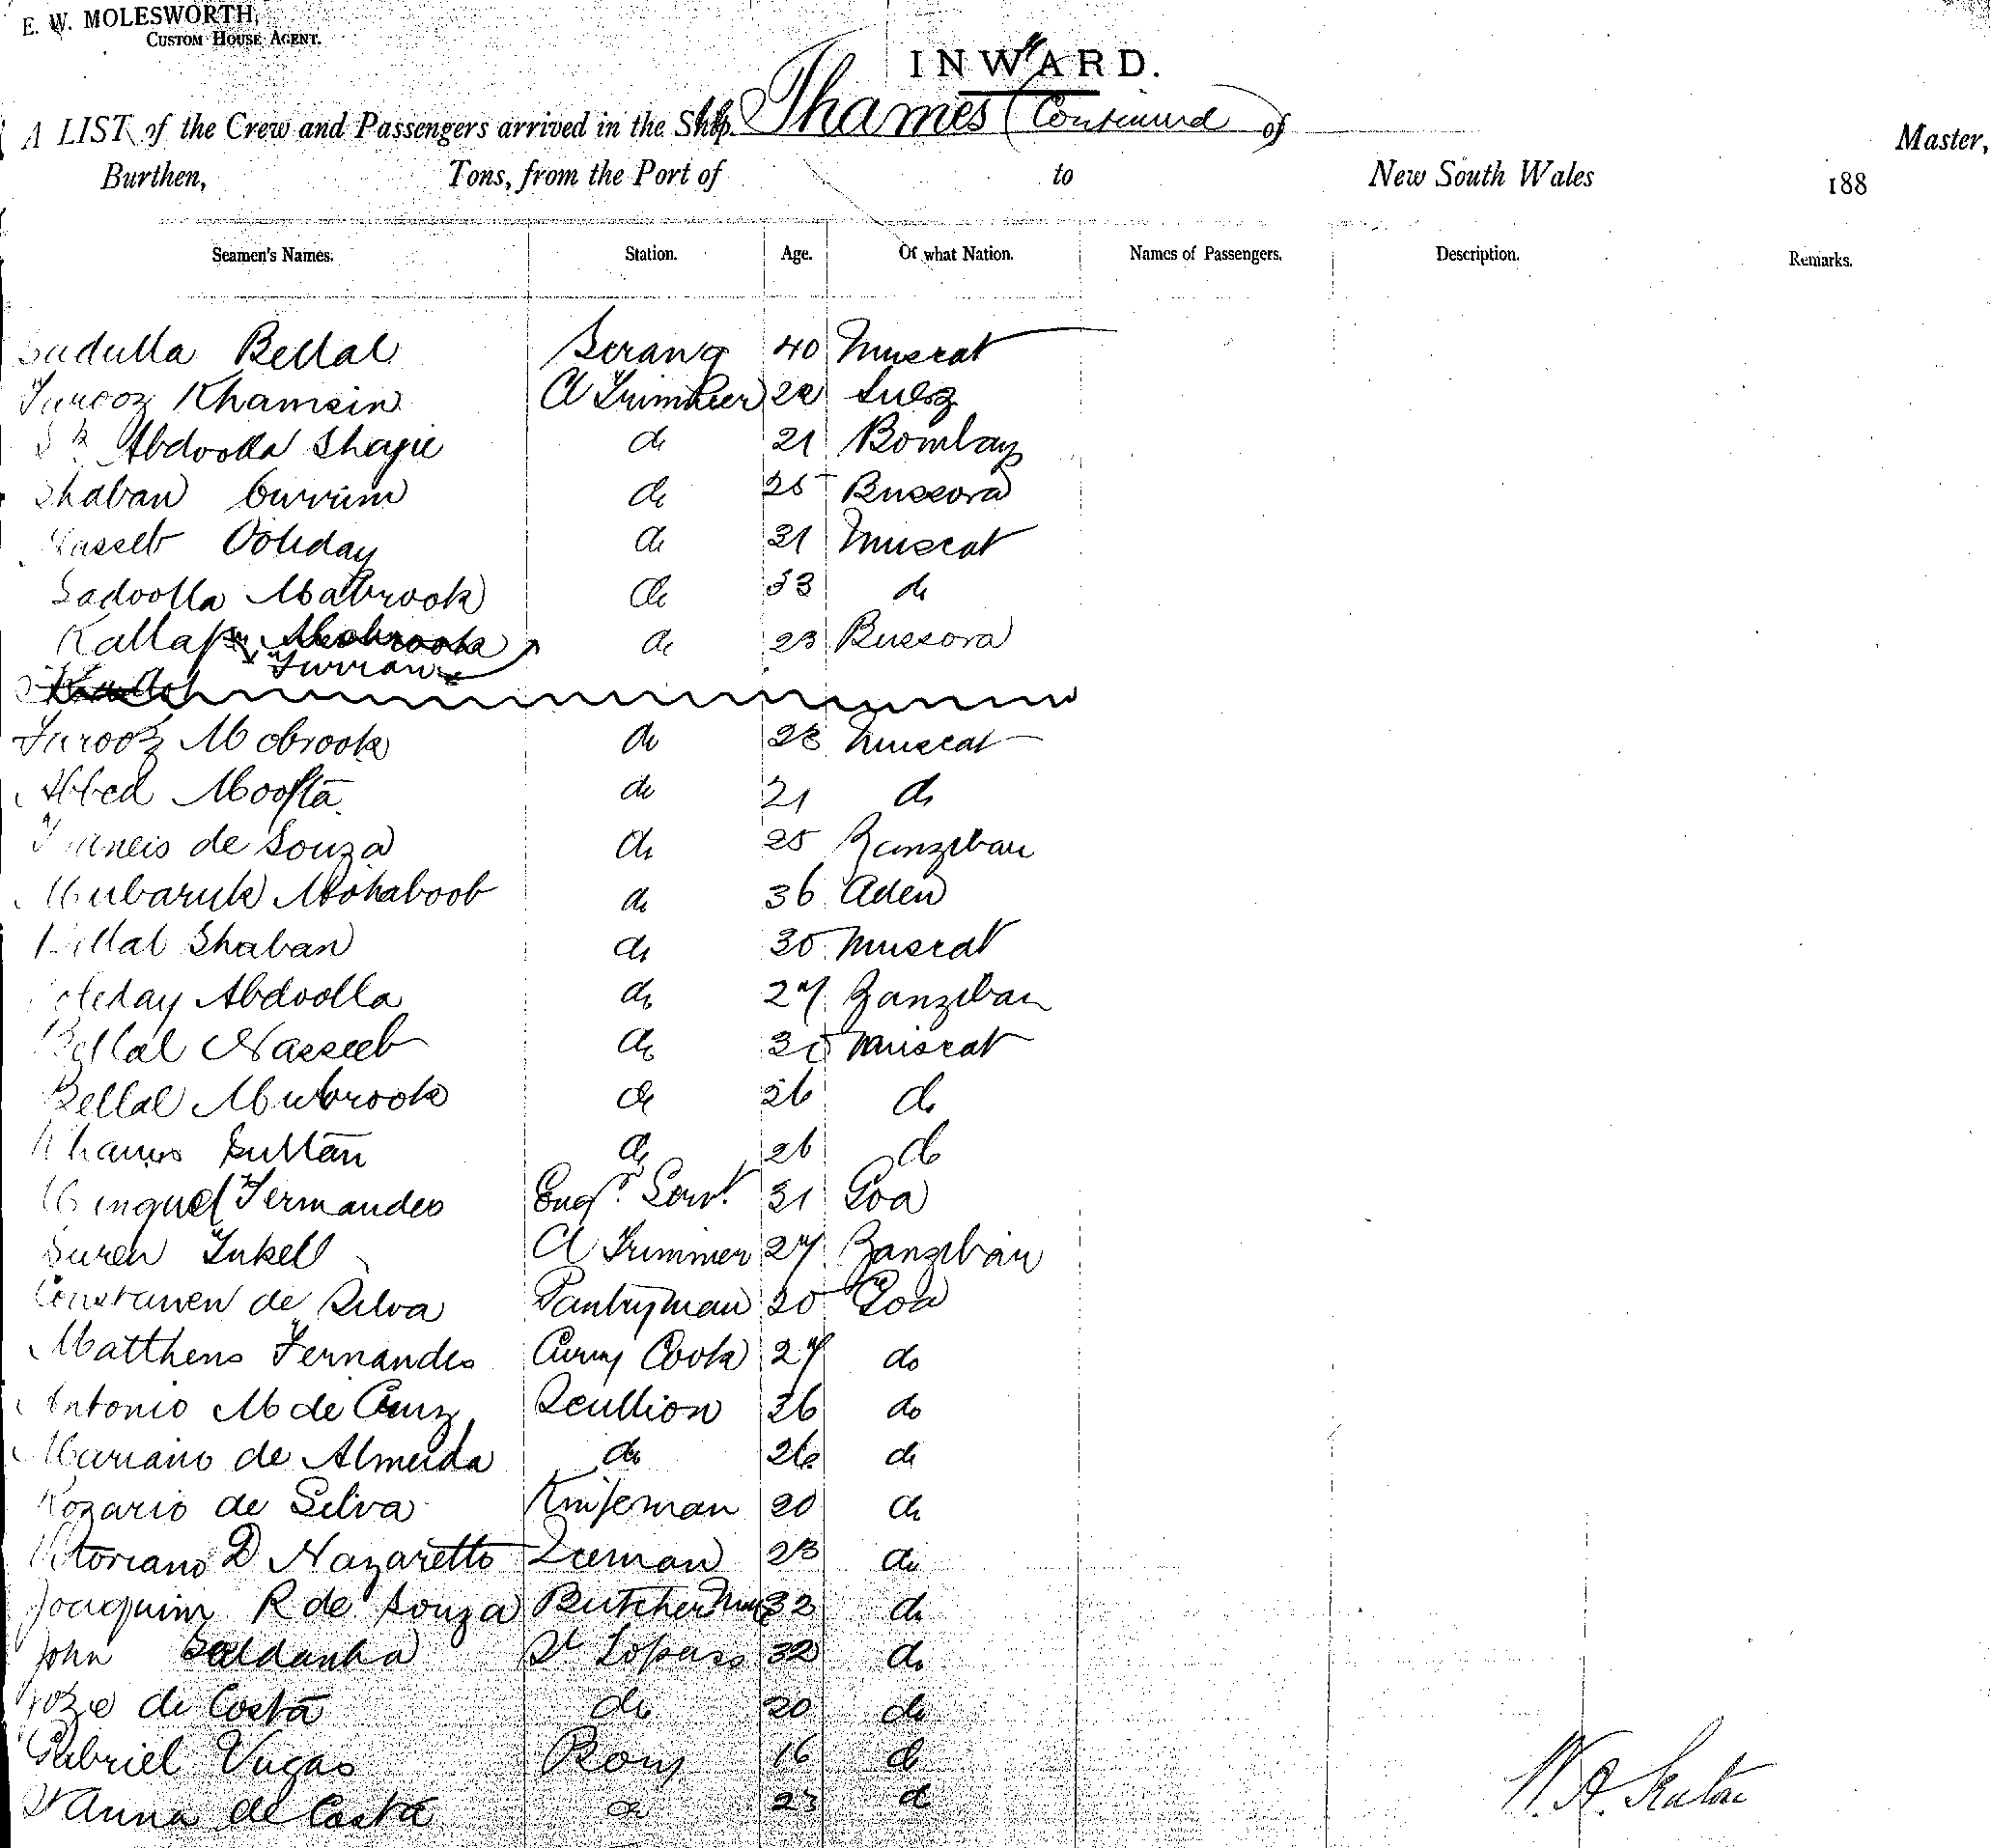 E. W. MOLESWORTH,
CUSTOM HOUSE AGENT.
INWARD.
A LIST of the Crew and Passengers arrived in the Ship Thames (Continued of Master,
Burthen, Tons, from the Port of to New South Wales 188
Seamen's Names. Station. Age. Of what Nation. Names of Passengers. Description. Remarks.
Sadulla Bellal Serang 40 Muscat
Farooz Khamsin Cl Trimmer 22 Suez
Sk Abdoolla Shayie do 21 Bombay
Shaban Currim do 25 Bussora
Nasseb Ooheday do 31 Muscat
Sadoolla Mabrook do 33 do
Kallafs Mabrook do 23 Bussora
Furran
Farooz Mobrook do 28 Muscat
Abed Moofta do 21 do
Francis de Souza do 25 Zanzibar
Mubaruk Mohaboob do 36 Aden
Billal Shaban do 30 Muscat
Oheday Abdoolla do 27 Zanzibar
Bellal Nasseeb do 35 Muscat
Bellal Mubrook do 26 do
Khamis Sultan do 26 do
Minguel Fernandes Engrs Servt. 31 Goa
Suren Inkell Cl Trimmer 27 Zanzibar
de Silva Pantryman 20 Goa
Matthens Fernandes Curry Cook 27 do
Antonio M de Cruz Scullion 36 do
Mariano de Almeida do 26 do
Rozario de Silva Knifeman 20 do
Vitoriano D Nazaretto Iceman 23 do
Joaquim R de Souza Butcher Mate 32 do
John Saldanha St Topass 32 do
Joze de Costa do 20 do
Gabriel Vagas Boy 16 do
St Anna de Costa do 23 do
W. A. Seaton